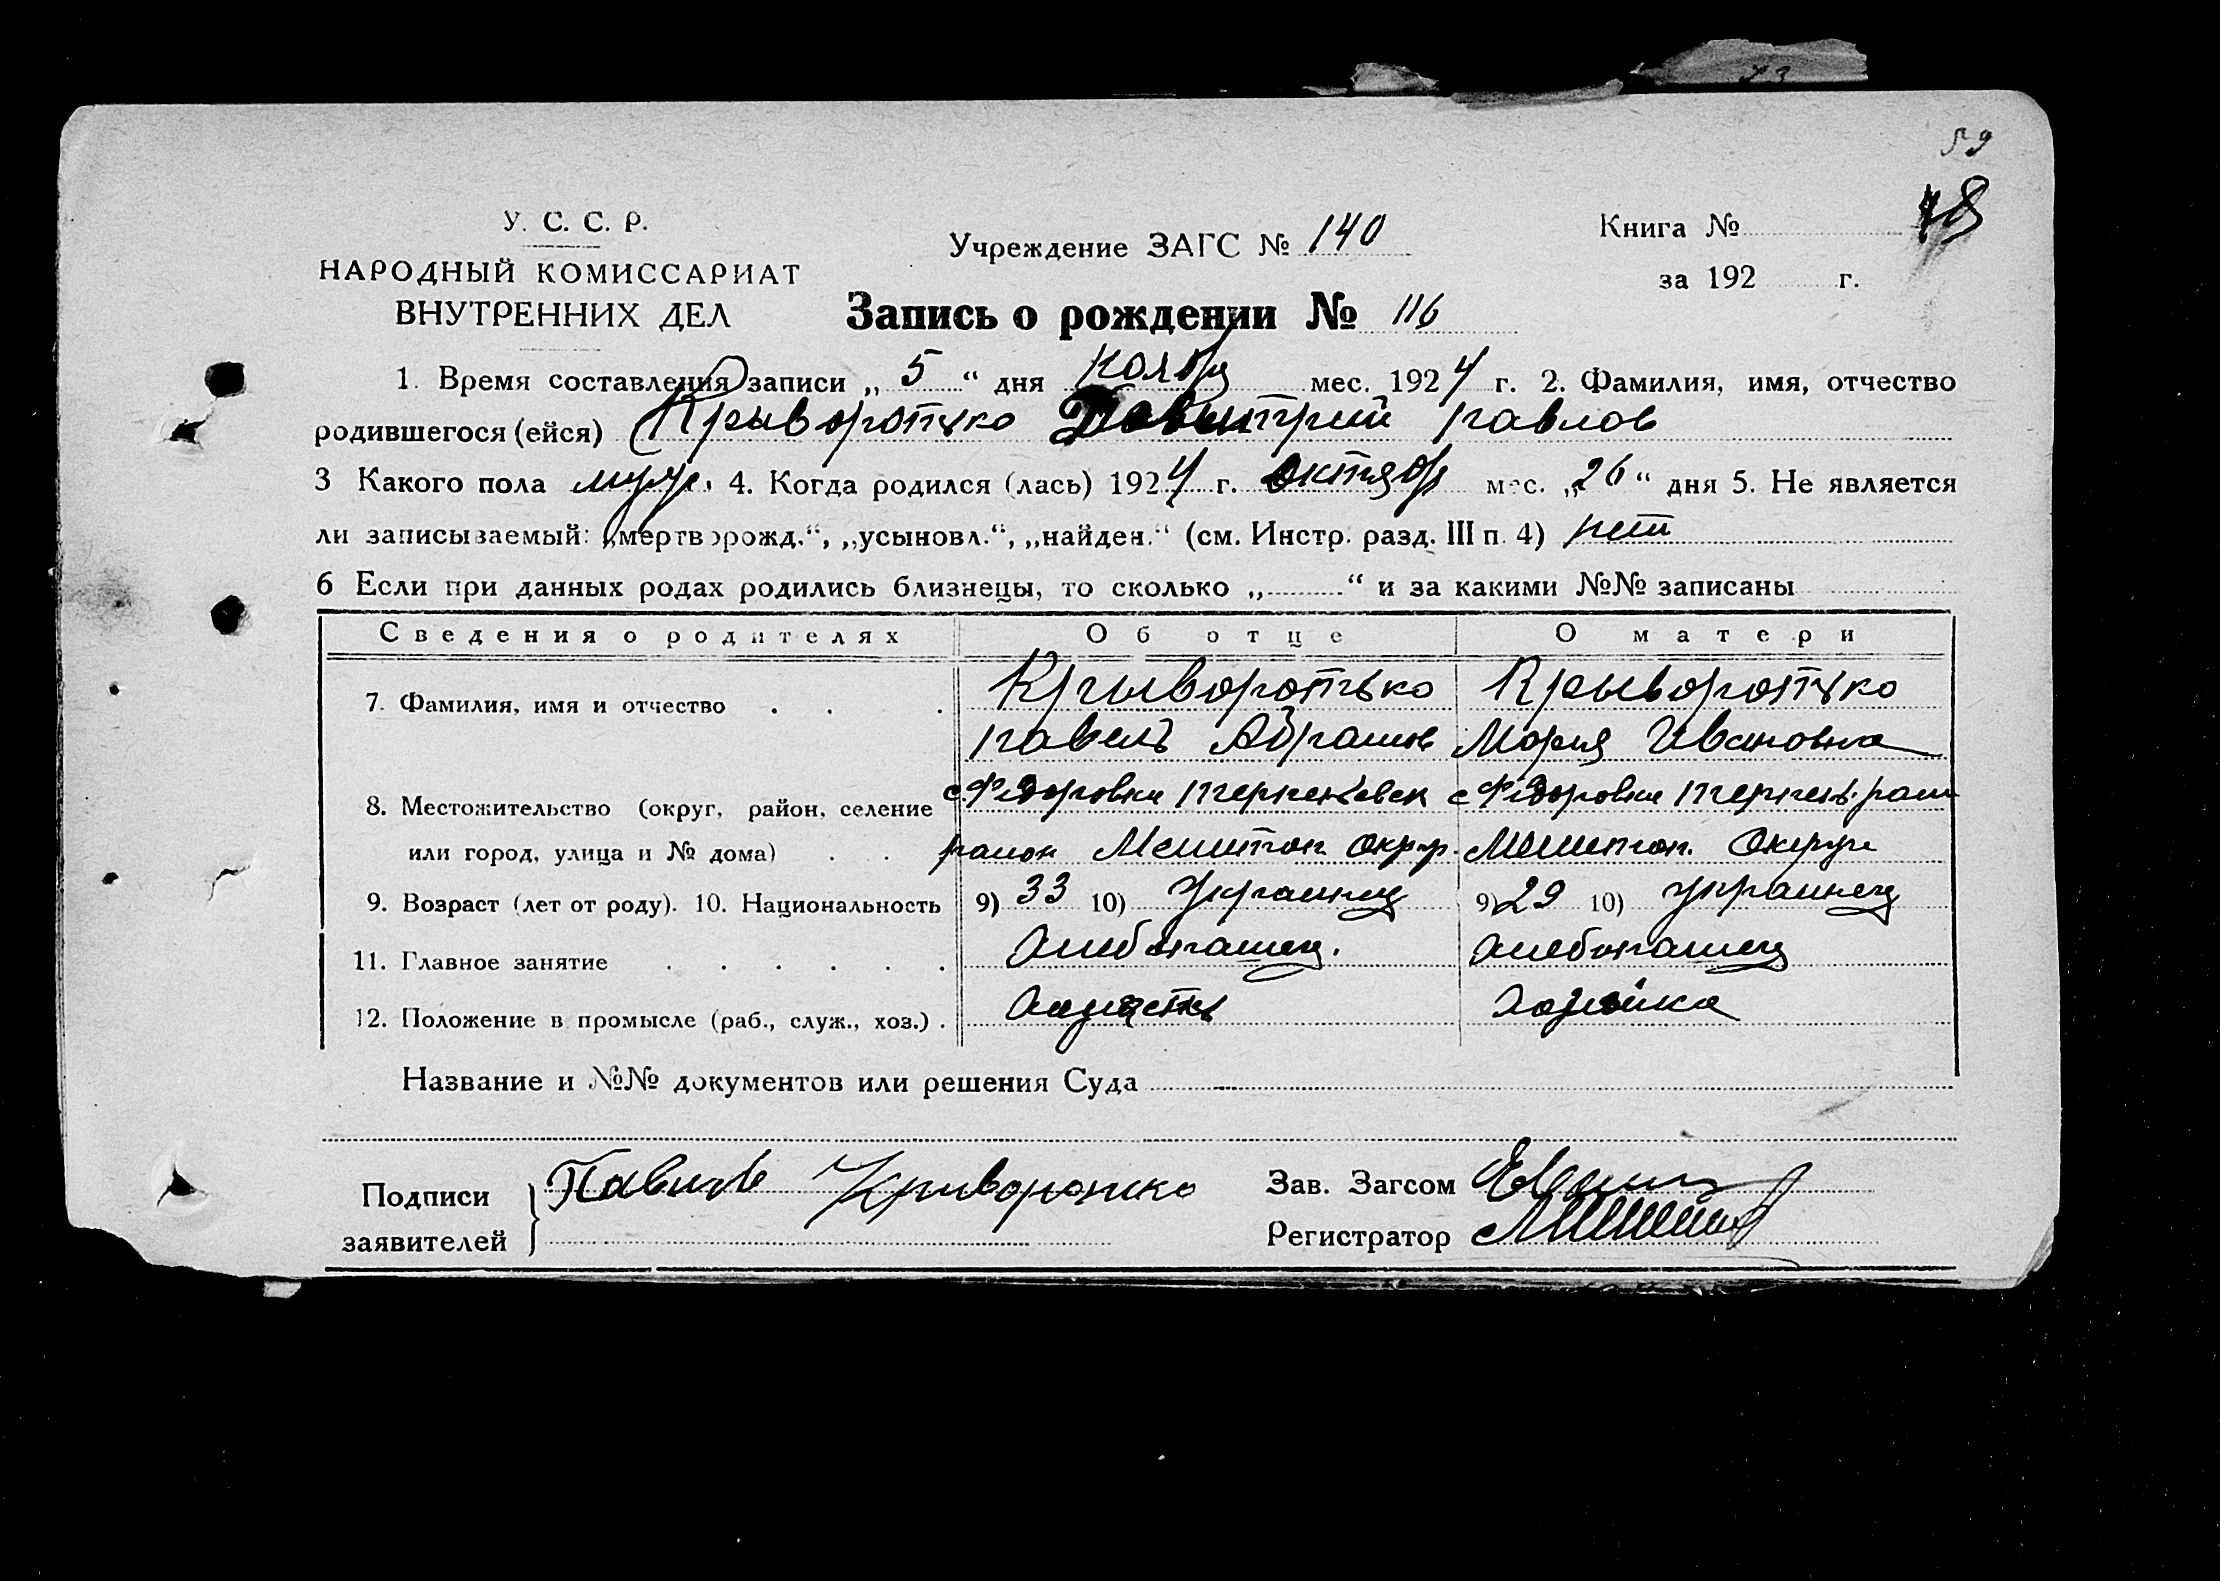 59
У. С. С. Р.
НАРОДНЫЙ КОМИССАРИАТ
ВНУТРЕННИХ ДЕЛ
Учреждение ЗАГС № 140
Книга № 48
за 192 г.
Запись о рождении № 116
1. Время составления записи „ 5 “ дня Ноября мес. 1924 г. 2. Фамилия, имя, отчество
родившегося (ейся) Крыворотько Дмитрий Павлов
3 Какого пола муж. 4. Когда родился (лась) 1924 г. Октябр мес. „ 26 “ дня 5. Не является
ли записываемый: „мертворожд.“, „усыновл.“, „найден.“ (см. Инстр. разд. III п. 4) нет
6 Если при данных родах родились близнецы, то сколько „ “ и за какими №№ записаны
Сведения о родителях Об отце О матери
7. Фамилия, имя и отчество Крыворотько Крыворотько
Павелъ Абрамов Мария Ивановна
8. Местожительство (округ, район, селение с. Федоровки с Федоровки
или город, улица и № дома) район Мелитоп. Округ. Мелитоп. Округи
9. Возраст (лет от роду). 10. Национальность 9) 33 10) Украинец 9) 29 10) Украинец
11. Главное занятие Хлебопашец. Хлебопашец
12. Положение в промысле (раб., служ., хоз.) Хозяйка
Название и №№ документов или решения Суда
Подписи заявителей Криворотько
Зав. Загсом
Регистратор